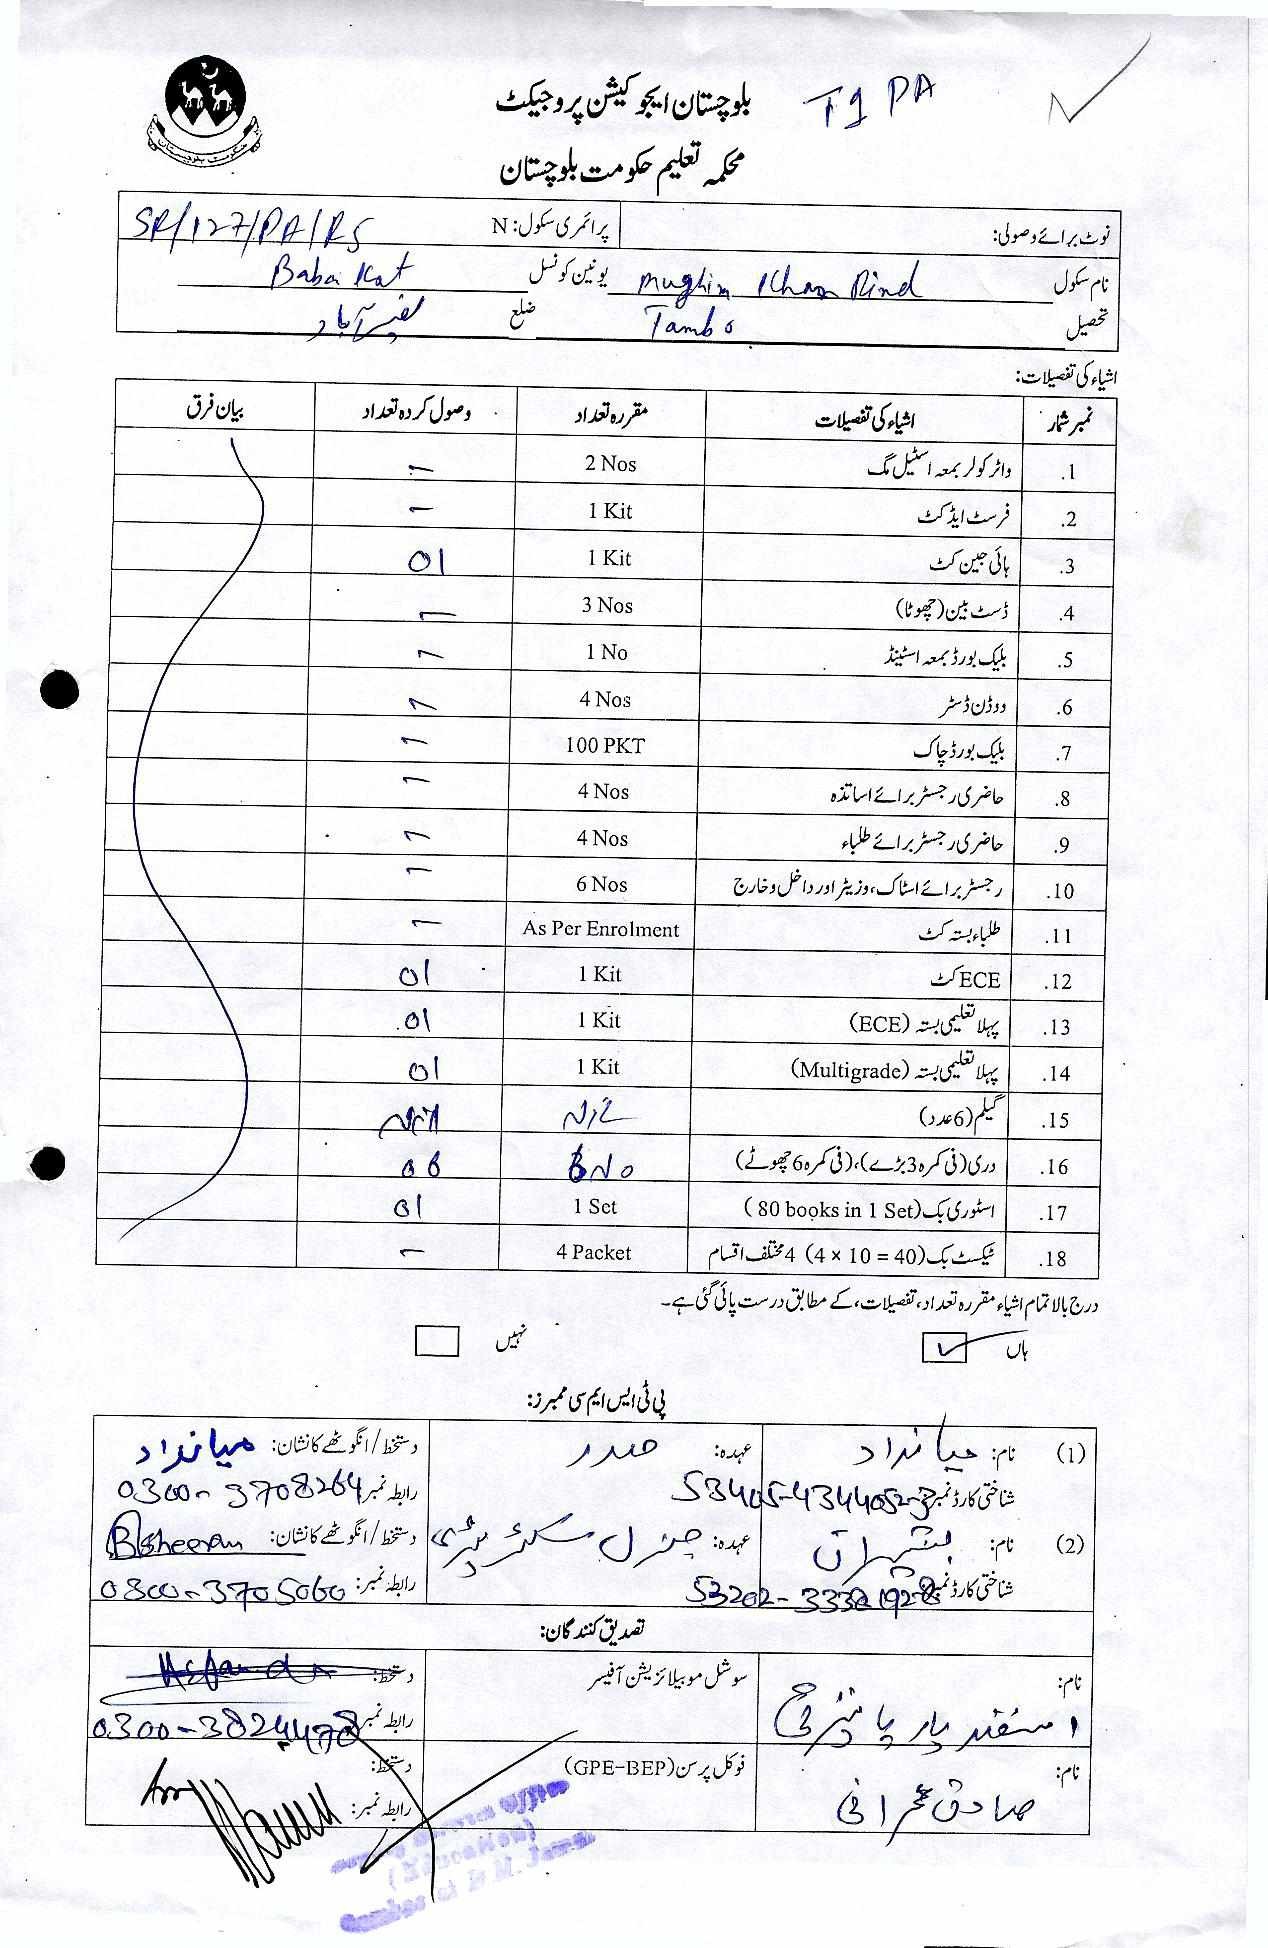 بلوچستان ایجوکیشن پروجیکٹ T9 PA
محکمہ تعلیم حکومت بلوچستان
حکومت بلوچستان
نوٹ برائے وصولی: پرائمری سکول: N SR/127/PA/RS
نام سکول Mughim Khan Rind یونین کونسل Baba Kot
تحصیل Tambo ضلع نصیرآباد
اشیاء کی تفصیلات:
نمبر شمار اشیاء کی تفصیلات مقررہ تعداد وصول کردہ تعداد بیان فرق
1. واٹر کولر بمعہ اسٹیل مگ 2 Nos –
2. فرسٹ ایڈ کٹ 1 Kit –
3. ہائی جین کٹ 1 Kit 01
4. ڈسٹ بین (چھوٹا) 3 Nos –
5. بلیک بورڈ بمعہ اسٹینڈ 1 No –
6. ووڈن ڈسٹر 4 Nos –
7. بلیک بورڈ چاک 100 PKT –
8. حاضری رجسٹر برائے اساتذہ 4 Nos –
9. حاضری رجسٹر برائے طلباء 4 Nos –
10. رجسٹر برائے اسٹاک، وزیٹر اور داخل و خارج 6 Nos –
11. طلباء بستہ کٹ As Per Enrolment –
12. ECE کٹ 1 Kit 01
13. پہلا تعلیمی بستہ (ECE) 1 Kit 01
14. پہلا تعلیمی بستہ (Multigrade) 1 Kit 01
15. گیلم (6 عدد) NIL
16. دری (فی کمرہ 3 بڑے)، (فی کمرہ 6 چھوٹے) 6 No 06
17. اسٹوری بک (80 books in 1 Set) 1 Set 01
18. ٹیکسٹ بک (4 × 10 = 40) 4 مختلف اقسام 4 Packet –
درج بالا تمام اشیاء مقررہ تعداد، تفصیلات، کے مطابق درست پائی گئی ہے۔
ہاں ✓ نہیں
پی ٹی ایس ایم سی ممبرز:
(1) نام: میانداد عہدہ: صدر دستخط/انگوٹھے کا نشان: میانداد
شناختی کارڈ نمبر: 53405-4344052-3 رابطہ نمبر 0300-3708264
(2) نام: بشیران عہدہ: جنرل سکریٹری دستخط/انگوٹھے کا نشان: Bsheeran
شناختی کارڈ نمبر: رابطہ نمبر: 0300-3705060
تصدیق کنندگان:
نام: اسفندیار سوشل موبیلائزیشن آفیسر دستخط:
رابطہ نمبر 0300-3824478
نام: صادق عمرانی فوکل پرسن (GPE-BEP) دستخط:
رابطہ نمبر:
Office
(Education)